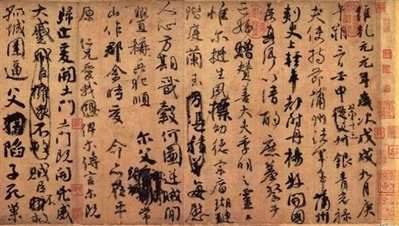 維乾元元年歲次戊戌九月庚
午朔三日壬申第十三叔銀青光祿
夫使持節蒲州諸軍事蒲州
刺史上輕車都尉丹楊縣開國
侯真卿以清酌庶羞祭于
亡姪贈贊善大夫季明之靈曰
惟爾挺生夙標幼德宗廟瑚璉
階庭蘭玉每慰
人心方期戩穀何圖逆賊間
釁稱兵犯順爾父常
山作郡余時受命亦在平
原仁兄愛我俾爾傳言爾既
歸止爰開土門土門既開兇威
大蹙賊臣不救
孤城圍逼父陷子死巢